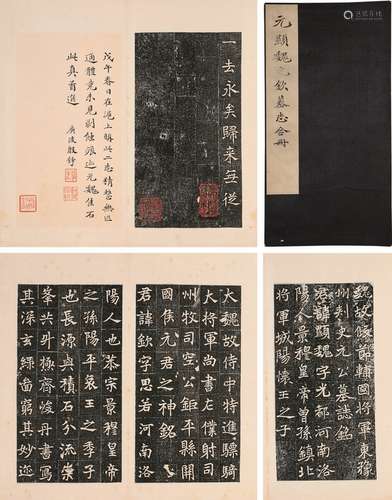 元顯魏元欽墓志合冊
一去永矣歸来無從
戊午春日在滬上購此二志精整無
通體竟未見剝蝕元魏佳石
此真首選
魏故假節輔國將軍東豫
州刺史元公墓誌銘
君諱顯魏字光都河南洛
陽人景穆皇帝曾孫鎮北
將軍城陽懷王之子
大魏故侍中特進驃騎
大將軍尚書左僕射司
州牧司空公鉅平縣開
國侯元君之神銘
君諱欽字思若河南洛
陽人也恭宗景穆皇帝
之孫陽平哀王之季子
也長源與積石分流崇
峯共升極齊峻丹書寫
其深玄綠啚窮其妙迹